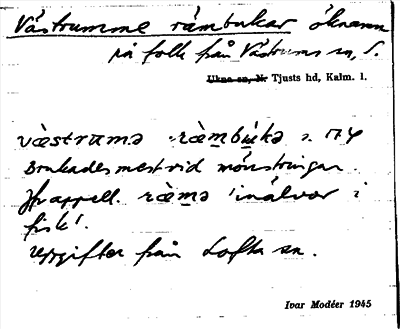 Västrumme råmbukar öknamn
på folk från Västrums sn, S.
Ukna sn, Nr Tjusts hd, Kalm. l.
væ̀strumə ràmbu̇kə
Brukades mest vid mönstringar.
Jfr appell. ràmə 'inälvor i
fisk'.
Uppgifter från Lofta sn.
Ivar Modéer 1945